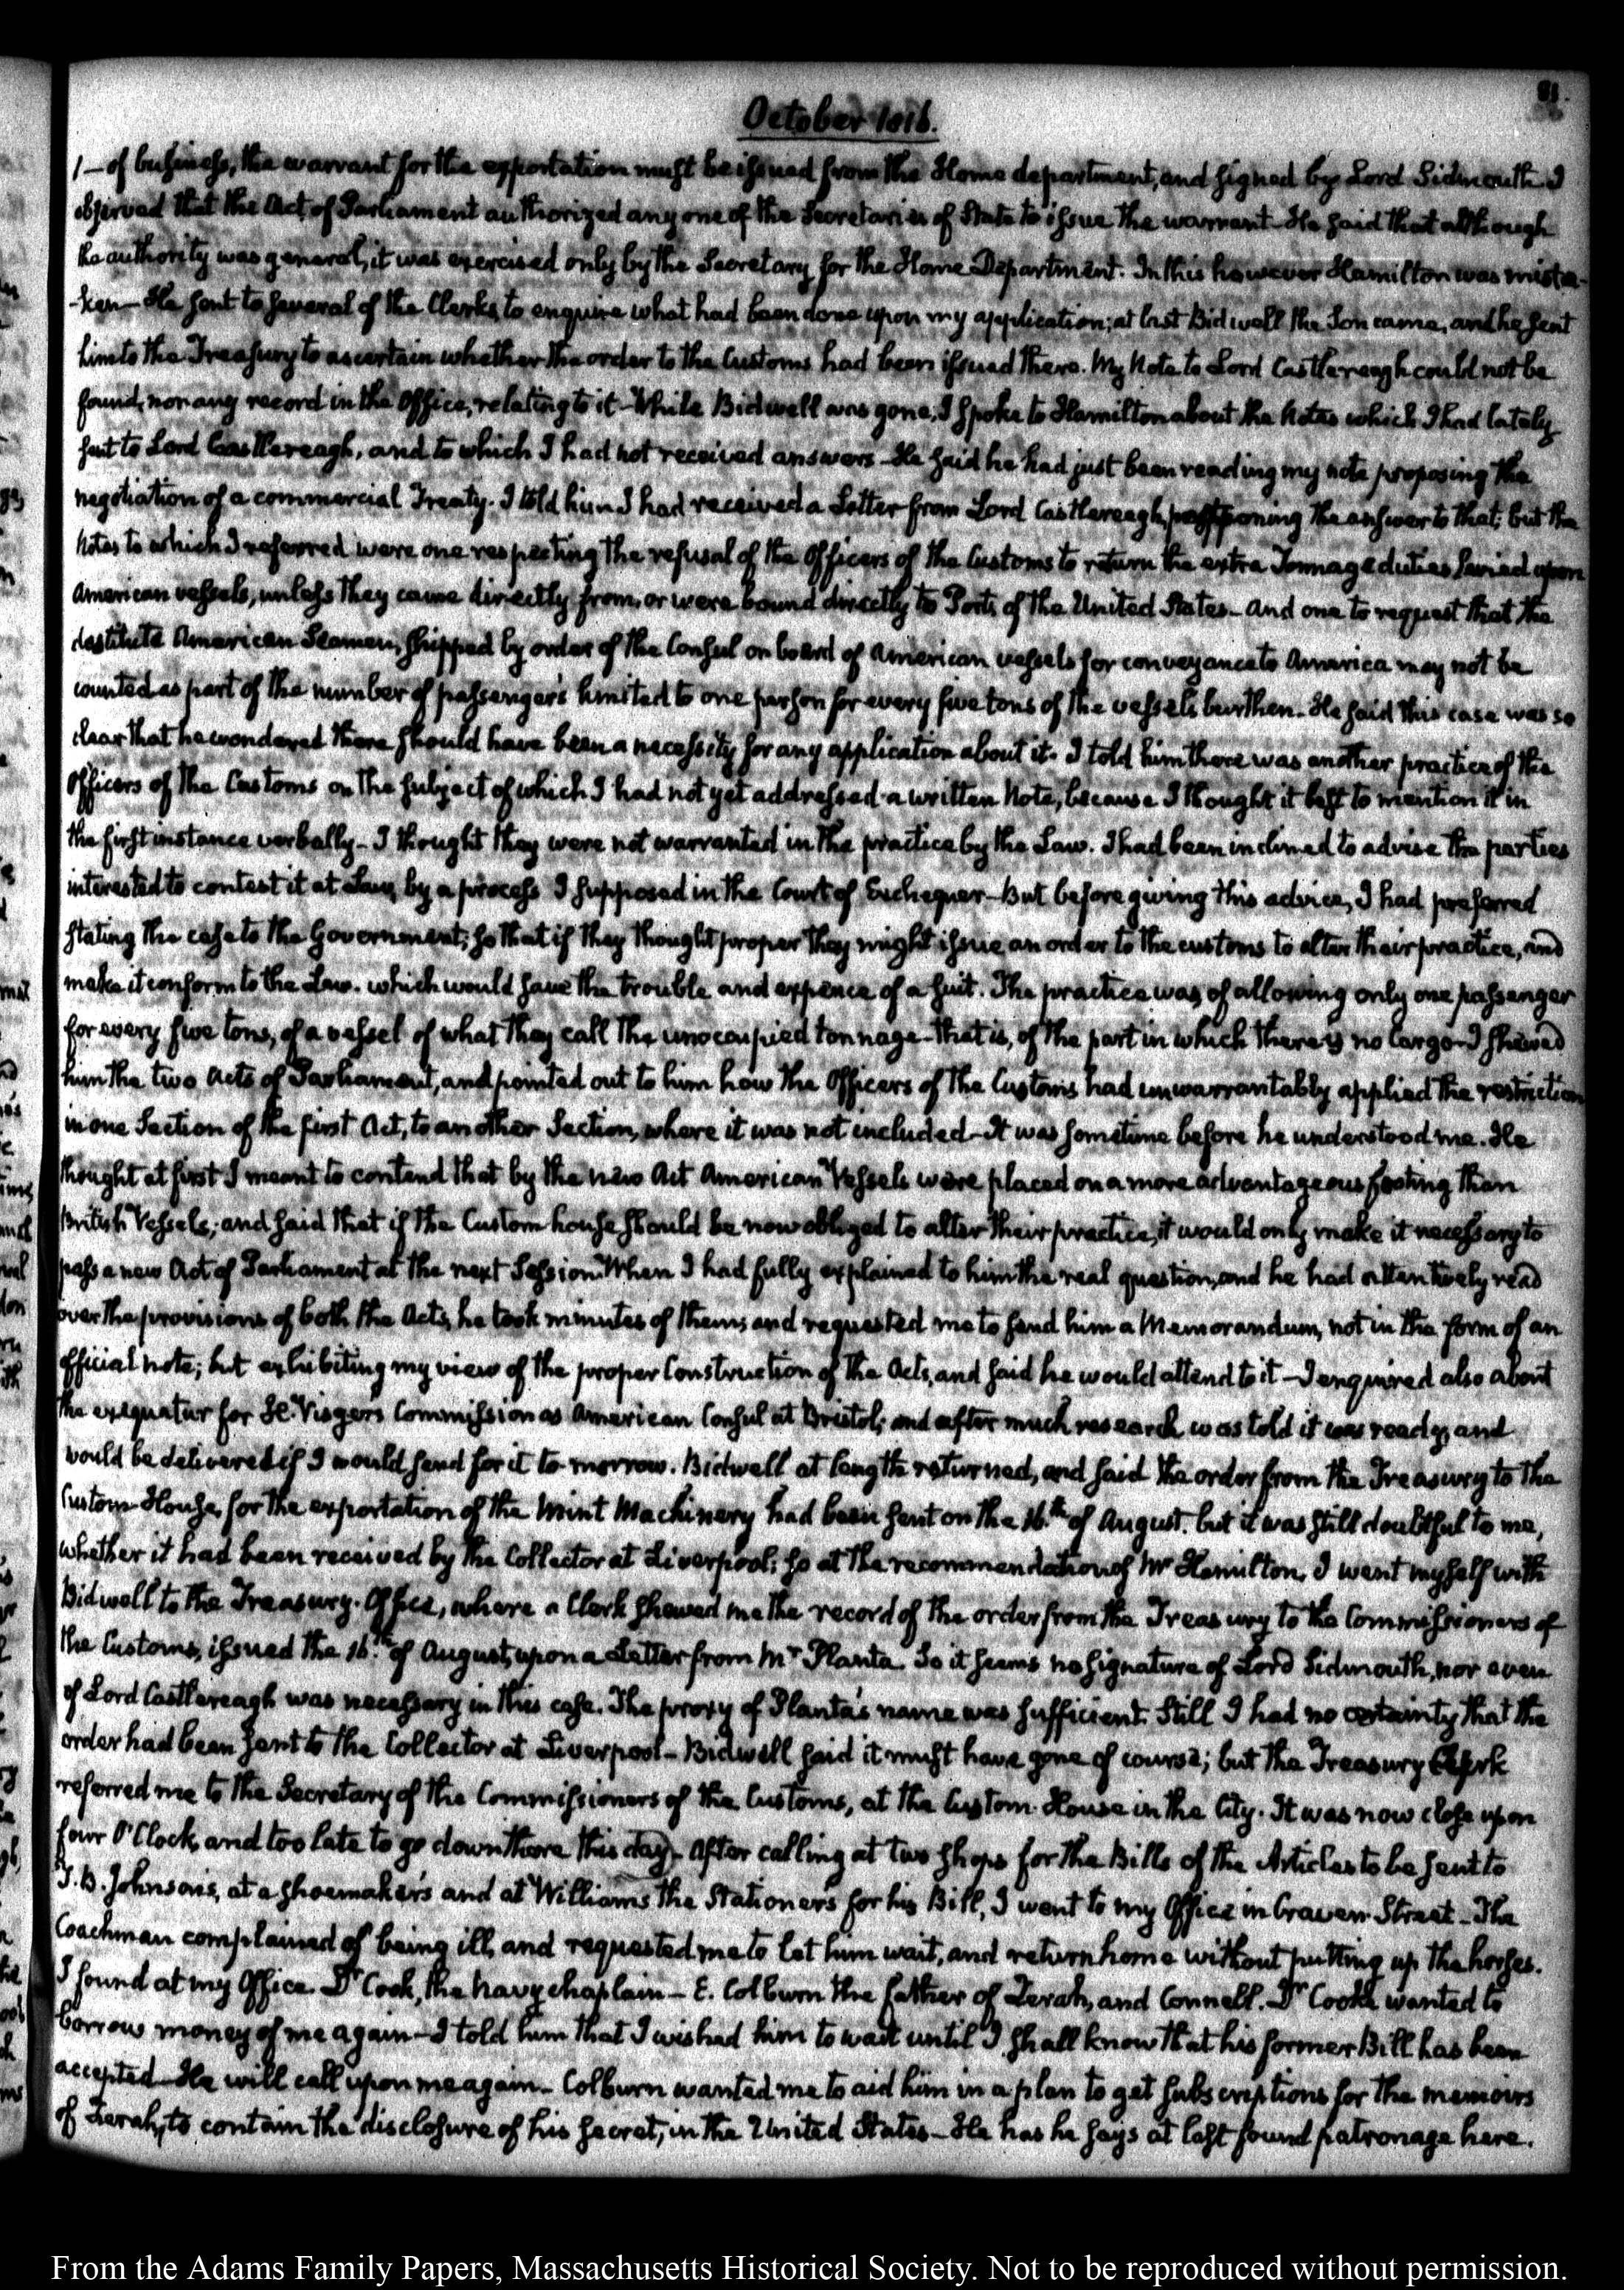 81.
October 1816.
1 — of business, the warrant for the exportation must be issued from the Home department, and signed by Lord Sidmouth. I
observed that the Act of Parliament authorized any one of the Secretaries of State to issue the warrant — He said that although
the authority was general, it was exercised only by the Secretary for the Home Department. In this however Hamilton was mista-
-ken — He sent to several of the Clerks, to enquire what had been done upon my application; at last Bidwell the Son came, and he sent
him to the Treasury to ascertain whether the order to the Customs had been issued there. My Note to Lord Castlereagh could not be
found, nor any record in the Office, relating to it — While Bidwell was gone, I spoke to Hamilton about the Notes which I had lately
sent to Lord Castlereagh, and to which I had not received answers — He said he had just been reading my note proposing the
negotiation of a commercial Treaty. I told him I had received a Letter from Lord Castlereagh, postponing the answer to that; but the
Notes to which I referred were one respecting the refusal of the Officers of the Customs to return the extra Tonnage duties levied upon
American vessels, unless they came directly from, or were bound directly to Ports of the United States — And one to request that the
destitute American Seamen, shipped by order of the Consul on board of American vessels for conveyance to America may not be
counted as part of the number of passengers limited to one person for every five tons of the vessels burthen — He said this case was so
clear that he wondered there should have been a necessity for any application about it. I told him there was another practice of the
Officers of the Customs on the subject of which I had not yet addressed a written Note, because I thought it best to mention it in
the first instance verbally — I thought they were not warranted in the practice by the Law. I had been inclined to advise the parties
interested to contest it at Law, by a process I supposed in the Court of Exchequer — But before giving this advice, I had preferred
stating the case to the Government; so that if they thought proper they might issue an order to the customs to alter their practice, and
make it conform to the Law. which would save the trouble and expence of a suit. The practice was, of allowing only one passenger
for every five tons, of a vessel of what they call the unoccupied tonnage — that is, of the part in which there is no Cargo — I shewed
him the two Acts of Parliament, and pointed out to him how the Officers of the Customs had unwarrantably applied the restriction
in one Section of the first Act, to another Section, where it was not included — It was sometime before he understood me. He
thought at first I meant to contend that by the new Act American Vessels were placed on a more advantageous footing than
British Vessels; and said that if the Custom house should be now obliged to alter their practice, it would only make it necessary to
pass a new Act of Parliament at the next Session. When I had fully explained to him the real question, and he had attentively read
over the provisions of both the Acts, he took minutes of them, and requested me to send him a Memorandum, not in the form of an
official note; but exhibiting my view of the proper Construction of the Acts, and said he would attend to it — I enquired also about
the exequatur for H. Visger's Commission as American Consul at Bristol; and after much research was told it was ready, and
would be delivered if I would send for it to-morrow. Bidwell at length returned, and said the order from the Treasury to the
Custom-House, for the exportation of the Mint Machinery had been sent on the 16th of August. but it was still doubtful to me,
whether it had been received by the Collector at Liverpool; so at the recommendation of Mr Hamilton, I went myself with
Bidwell to the Treasury-Office, where a Clerk shewed me the record of the order from the Treasury to the Commissioners of
the Customs, issued the 16th of August, upon a Letter from Mr Planta. So it seems no signature of Lord Sidmouth, nor even
of Lord Castlereagh was necessary in this case. The proxy of Planta's name was sufficient. Still I had no certainty that the
order had been sent to the Collector at Liverpool — Bidwell said it must have gone of course; but the Treasury Clerk
referred me to the Secretary of the Commissioners of the Customs, at the Custom-House in the City. It was now close upon
four O'Clock, and too late to go down there this day — After calling at two shops for the Bills of the Articles to be sent to
T. B. Johnson's, at a shoemaker's and at Williams the Stationer's for his Bill, I went to my Office in Craven-Street — The
Coachman complained of being ill, and requested me to let him wait, and return home without putting up the horses.
I found at my Office Dr Cook, the navy chaplain — E. Colburn the father of Zerah, and Connell. Dr Cooke wanted to
borrow money of me again — I told him that I wished him to wait until I shall know that his former Bill has been
accepted — He will call upon me again — Colburn wanted me to aid him in a plan to get subscriptions for the memoirs
of Zerah, to contain the disclosure of his secret, in the United States — He has he says at last found patronage here.
From the Adams Family Papers, Massachusetts Historical Society. Not to be reproduced without permission.